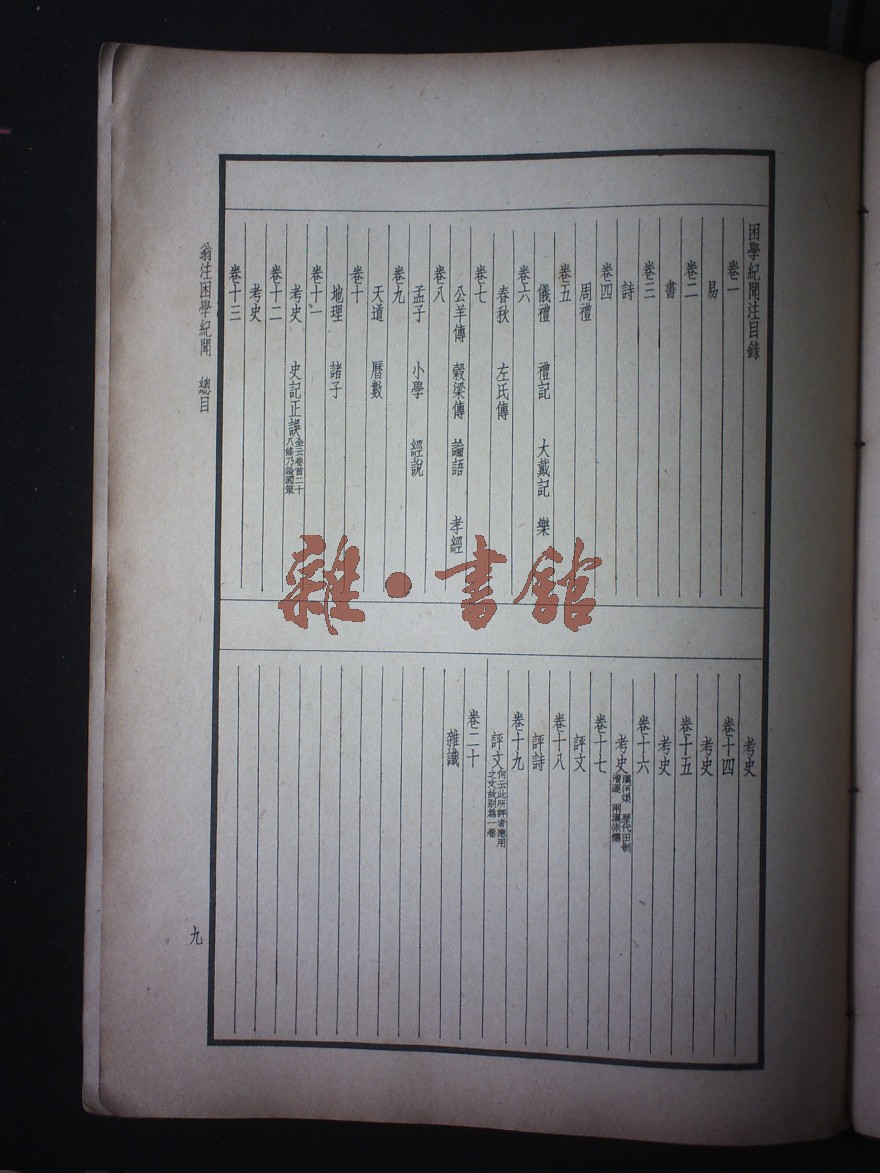 困學紀聞注目錄
卷一
易
卷二
書
卷三
詩
卷四
周禮
卷五
儀禮 禮記 大戴記 樂
卷六
春秋 左氏傳
卷七
公羊傳 穀梁傳 論語 孝經
卷八
孟子 小學 經說
卷九
天道 曆數
卷十
地理 諸子
卷十一
考史 史記正誤 全云卷首二十八條乃論國策
卷十二
考史
卷十三
考史
卷十四
考史
卷十五
考史
卷十六
考史 漢河渠 歷代田制 漕運 兩漢崇儒
卷十七
評文
卷十八
評詩
卷十九
評文 何云此所評者應用之文故別為一卷
卷二十
雜識
翁注困學紀聞 總目
九
雜·書館